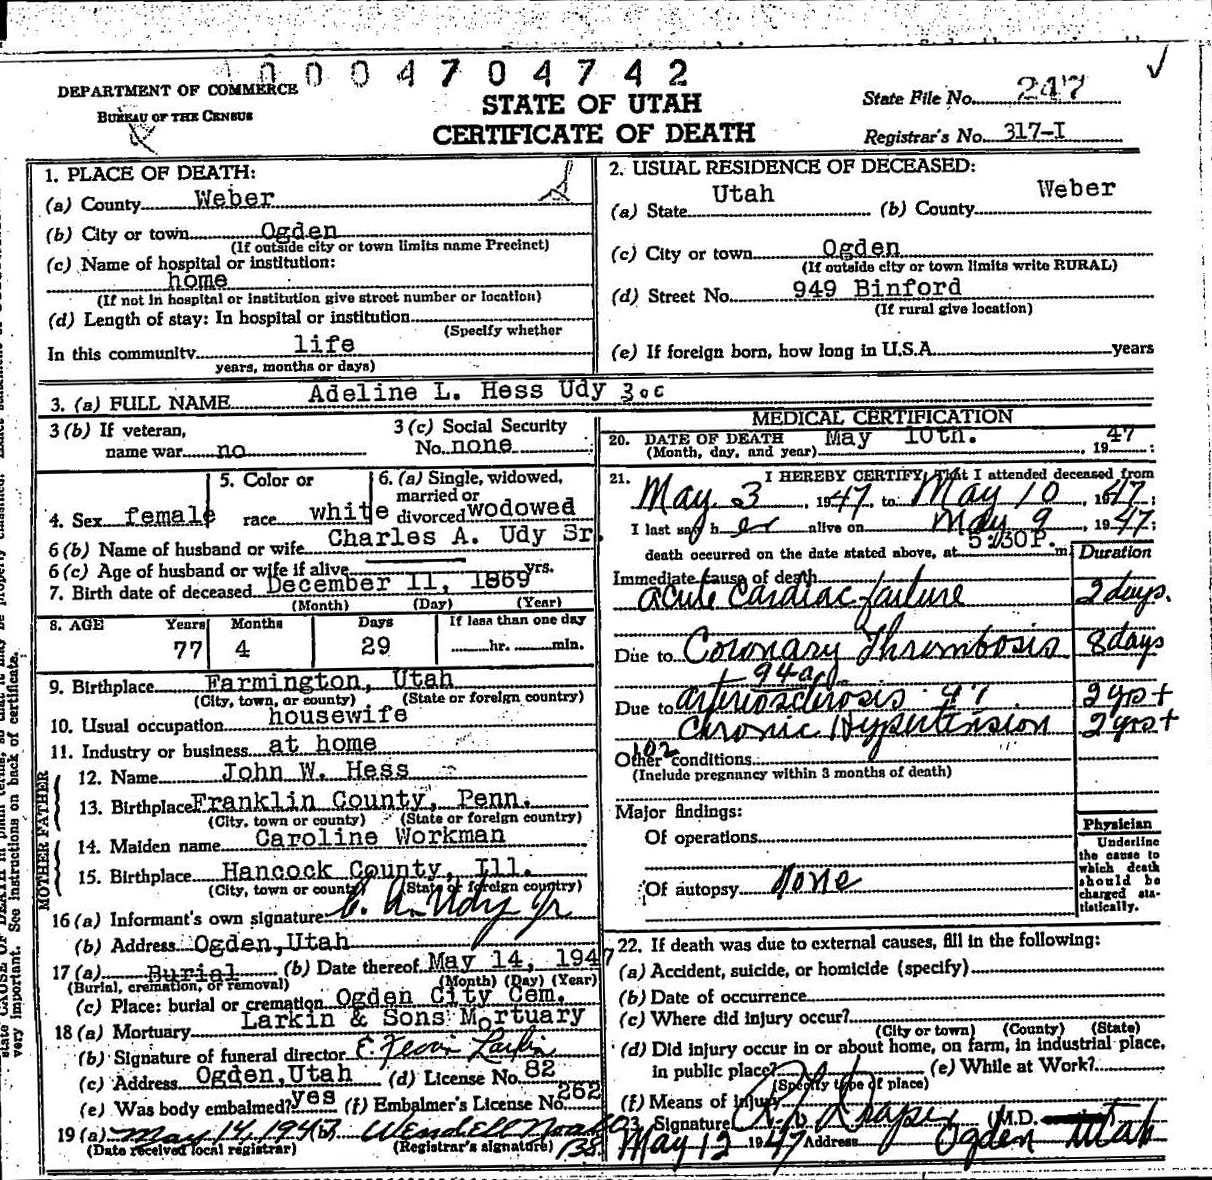 0004704742
DEPARTMENT OF COMMERCE
BUREAU OF THE CENSUS
STATE OF UTAH
CERTIFICATE OF DEATH
State File No. 247
Registrar's No. 317-I
1. PLACE OF DEATH:
(a) County Weber
(b) City or town Ogden
(If outside city or town limits name Precinct)
(c) Name of hospital or institution:
home
(If not in hospital or institution give street number or location)
(d) Length of stay: In hospital or institution
(Specify whether
In this community life
years, months or days)
2. USUAL RESIDENCE OF DECEASED:
(a) State Utah (b) County Weber
(c) City or town Ogden
(If outside city or town limits write RURAL)
(d) Street No. 949 Binford
(If rural give location)
(e) If foreign born, how long in U.S.A. years
3. (a) FULL NAME Adeline L. Hess Udy
3 (b) If veteran, name war no
3 (c) Social Security No. none
4. Sex female
5. Color or race white
6. (a) Single, widowed, married or divorced wodowed
6 (b) Name of husband or wife Charles A. Udy Sr.
6 (c) Age of husband or wife if alive yrs.
7. Birth date of deceased December 11, 1869
(Month) (Day) (Year)
8. AGE Years Months Days If less than one day
77 4 29 hr. min.
9. Birthplace Farmington, Utah
(City, town, or county) (State or foreign country)
10. Usual occupation housewife
11. Industry or business at home
FATHER
12. Name John W. Hess
13. Birthplace Franklin County, Penn.
(City, town or county) (State or foreign country)
MOTHER
14. Maiden name Caroline Workman
15. Birthplace Hancock County, Ill.
(City, town or county) (State or foreign country)
16 (a) Informant's own signature C. A. Udy Jr
(b) Address Ogden, Utah
17 (a) Burial (b) Date thereof May 14, 1947
(Burial, cremation, or removal) (Month) (Day) (Year)
(c) Place: burial or cremation Ogden City Cem.
18 (a) Mortuary Larkin & Sons Mortuary
(b) Signature of funeral director Larkin
(c) Address Ogden, Utah (d) License No. 82
(e) Was body embalmed? yes (f) Embalmer's License No. 262
19 (a) May 14, 194 (b) Wendell
(Date received local registrar) (Registrar's signature)
MEDICAL CERTIFICATION
20. DATE OF DEATH May 10th. , 1947:
(Month, day, and year)
21. I HEREBY CERTIFY, That I attended deceased from
May 3, 1947 to May 10, 1947;
I last saw her alive on May 9, 1947;
death occurred on the date stated above, at 5:30P. m
Duration
Immediate cause of death
acute cardiac failure 2 days.
Due to Coronary Thrombosis 8 days
94a
Due to arteriosclerosis 97 2 yrs+
Chronic Hypertension 2 yrs+
102
Other conditions
(Include pregnancy within 3 months of death)
Major findings:
Of operations
Of autopsy None
Physician
Underline
the cause to
which death
should be
charged sta-
tistically.
22. If death was due to external causes, fill in the following:
(a) Accident, suicide, or homicide (specify)
(b) Date of occurrence
(c) Where did injury occur?
(City or town) (County) (State)
(d) Did injury occur in or about home, on farm, in industrial place,
in public place? (e) While at Work?
(Specify type of place)
(f) Means of injury
23. Signature Draper (M.D.
May 12 1947 Address Ogden Utah
very important. See instructions on back of certificate.